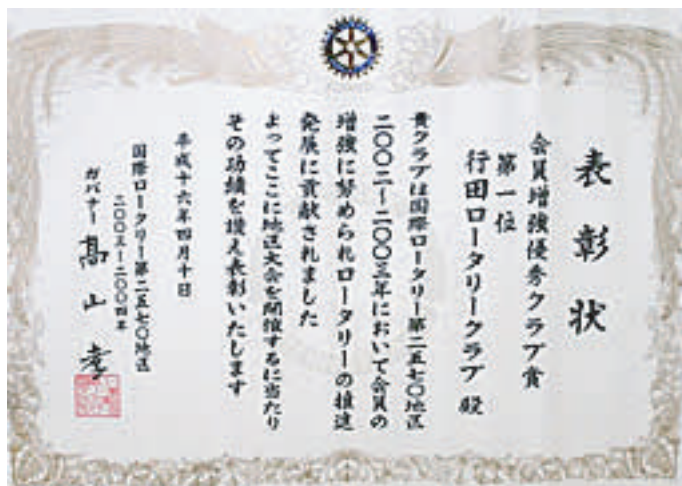 表彰状
会員増強優秀クラブ賞
第一位
行田ロータリークラブ 殿
貴クラブは国際ロータリー第二五七〇地区
二〇〇二〜二〇〇三年において会員の
増強に努められロータリーの推進
発展に貢献されました
よってここに地区大会を開催するに当たり
その功績を讃え表彰いたします
平成十六年四月十日
国際ロータリー第二五七〇地区
二〇〇三〜二〇〇四年
ガバナー 髙山孝